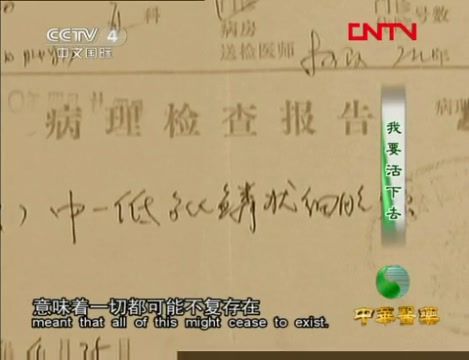 CCTV 4
中文国际
CNTV
科
门诊
号数
病房
送检医师
病理检查报告
中一低分化鳞状细胞
我要活下去
意味着一切都可能不复存在
meant that all of this might cease to exist.
中華醫藥